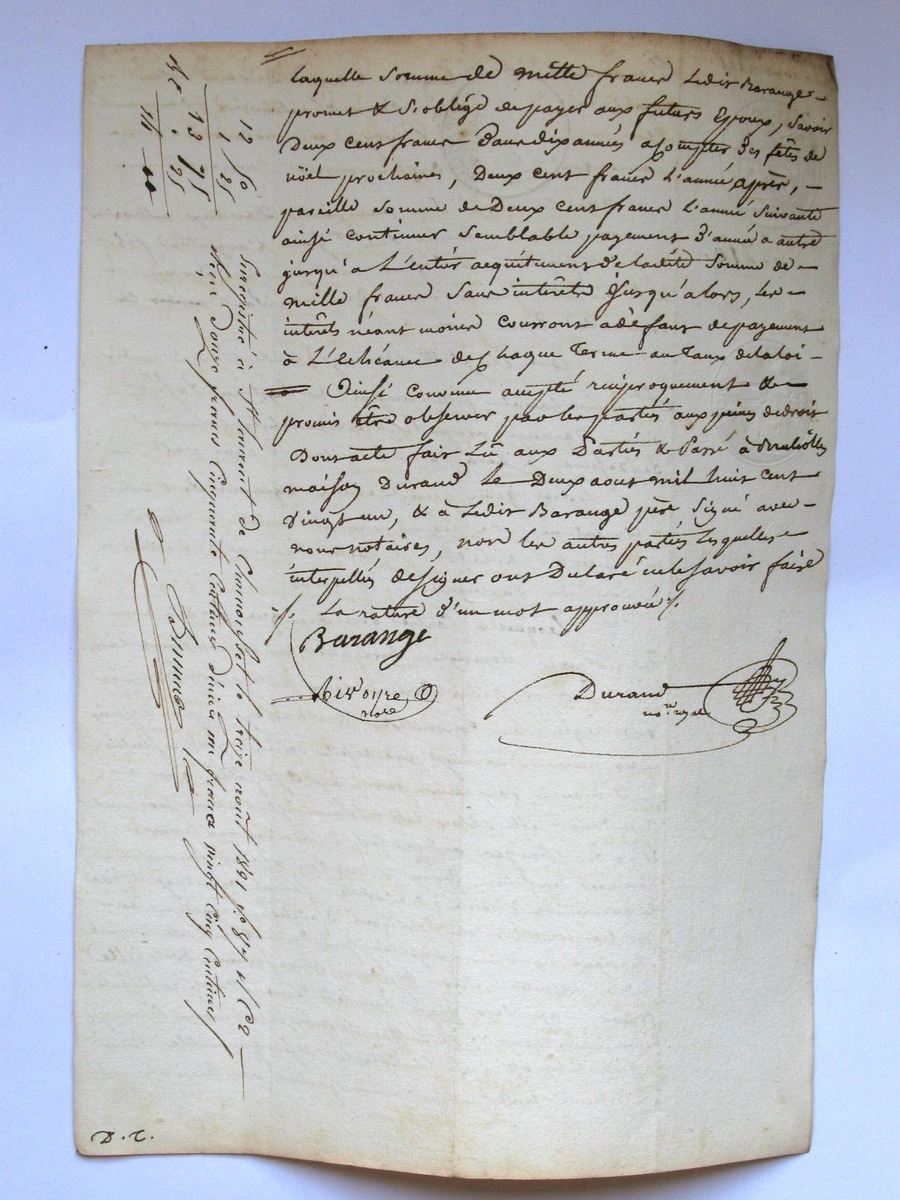 laquelle Somme de mille francs Ledit Barange
promet & S'oblige de payer aux futurs Epoux, Savoir
Deux cent francs Dans dix années a Compter Des fêtes de
nöel prochaines, Deux cent francs L'année après,
pareille Somme de Deux cent francs L'année Suivante
ainsi continuer Semblable payement D'année a autre
jusqu'a L'entier acquitement de ladite Somme de
mille francs Sans intérêts Jusqu'alors, Les
intérêts néant moins Courront a défaut de payement
à L'échéance de Chaque Terme au Taux de la loi
Ainsi Convenu accepté réciproquement &
promis être observer par les parties aux peines de droit
Dont acte fait Lû aux Parties & Passé à
maison Durand Le Deux aout mil huit cent
Vingt un, & à Ledit Barange père Signé avec
nous notaires, non les autres parties Lesquelles
interpellés de signer ont Déclaré ne le Savoir faire
/. La rature d'un mot approuvée /.
Barange
Durand
nore
12 50
1 25
13 75
25
14 00
Enregistré à St Laurent de Chamousset le treize août 1821 fo 87 Vo C2
Reçu Douze francs Cinquante Centimes Dixième un franc vingt Cinq Centimes
D. C.